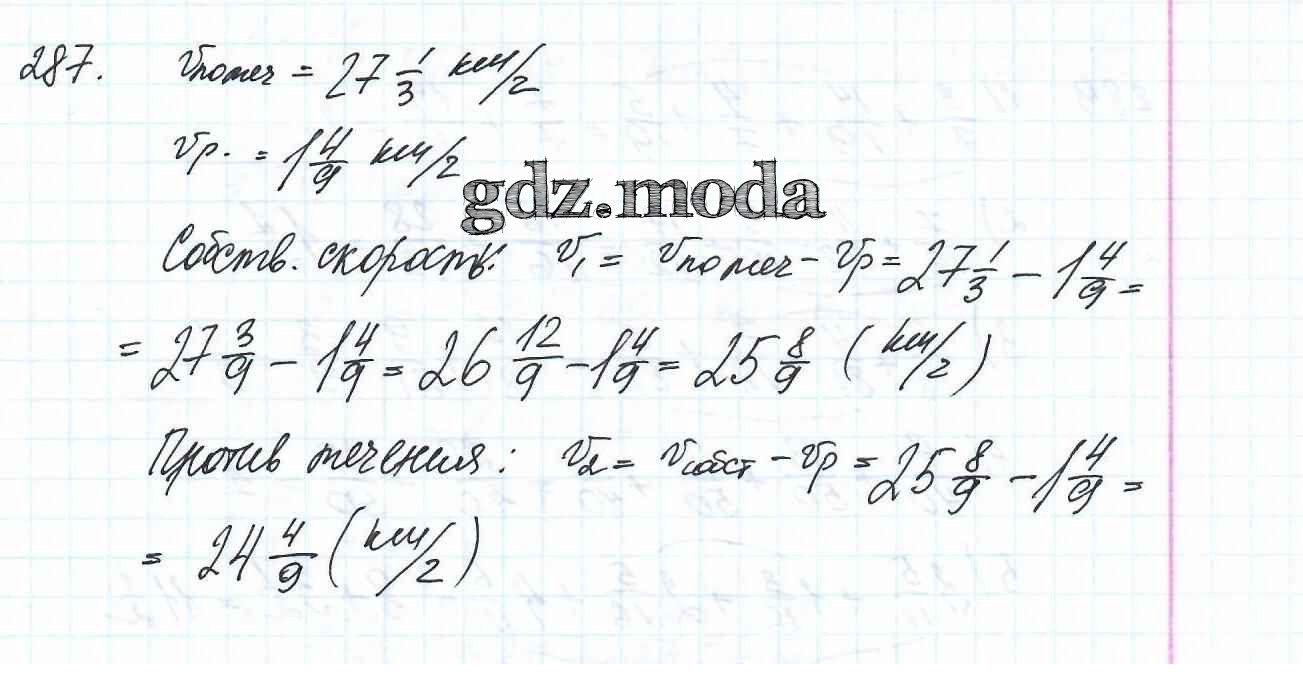 287. Vпо теч = 27 1/3 км/г
Vр. = 1 4/9 км/г
gdz.moda
Собств. скорость: V₁ = Vпо теч − Vр = 27 1/3 − 1 4/9 =
= 27 3/9 − 1 4/9 = 26 12/9 − 1 4/9 = 25 8/9 (км/г)
Против течения: V₂ = Vсобст − Vр = 25 8/9 − 1 4/9 =
= 24 4/9 (км/г)